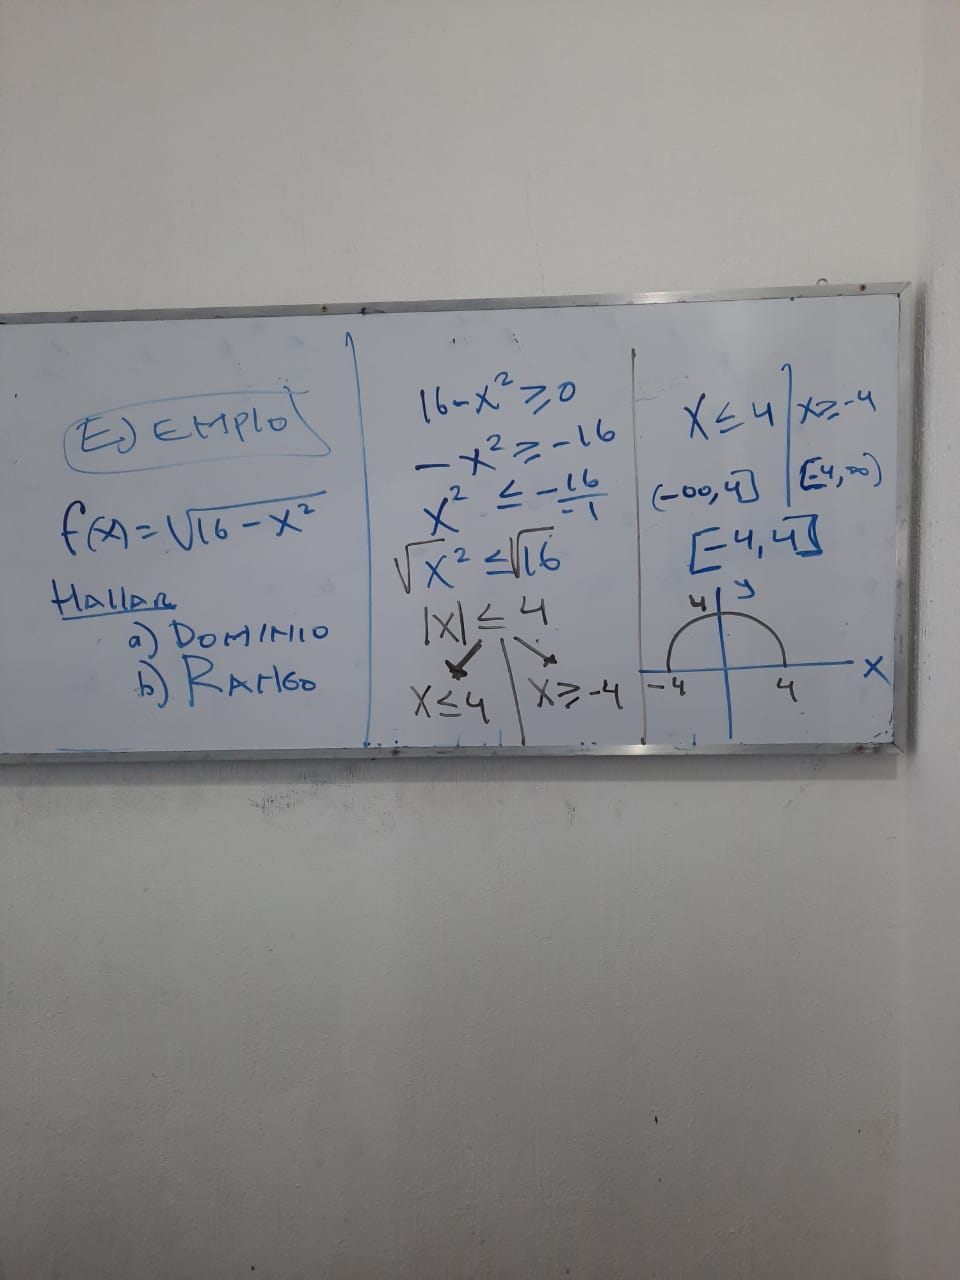 EJEMPLO
f(x)=√16-x²
HALLAR
a) DOMINIO
b) RANGO
16-x²≥0
-x²≥-16
x² ≤ -16/-1
√x² ≤√16
|x| ≤ 4
x≤4 | x≥-4
x≤4 | x≥-4
(-∞,4] [-4,∞)
[-4,4]
4 y
-4 4 x